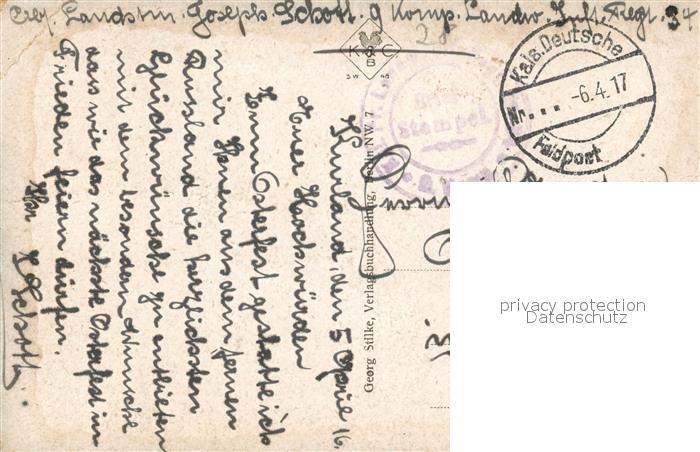 Landstm. Joseph Schott. 9 Komp. Landw. Inft. Regt. 37
28
K C
B
3W 45
Kais. Deutsche
Nr. - - - -6.4.17
Feldpost
Stempel
Georg Stilke, Verlagsbuchhandlung, Berlin NW. 7
Kurland, den 5 April 16.
Euer Hochwürden
Zum Osterfest gestatte ich
mir Ihnen aus dem fernen
Russland die herzlichsten
Glückwünsche zu entbieten
mit dem besondern Wunsche
das wir das nächste Osterfest im
Frieden feiern dürfen.
Schott.
privacy protection
Datenschutz